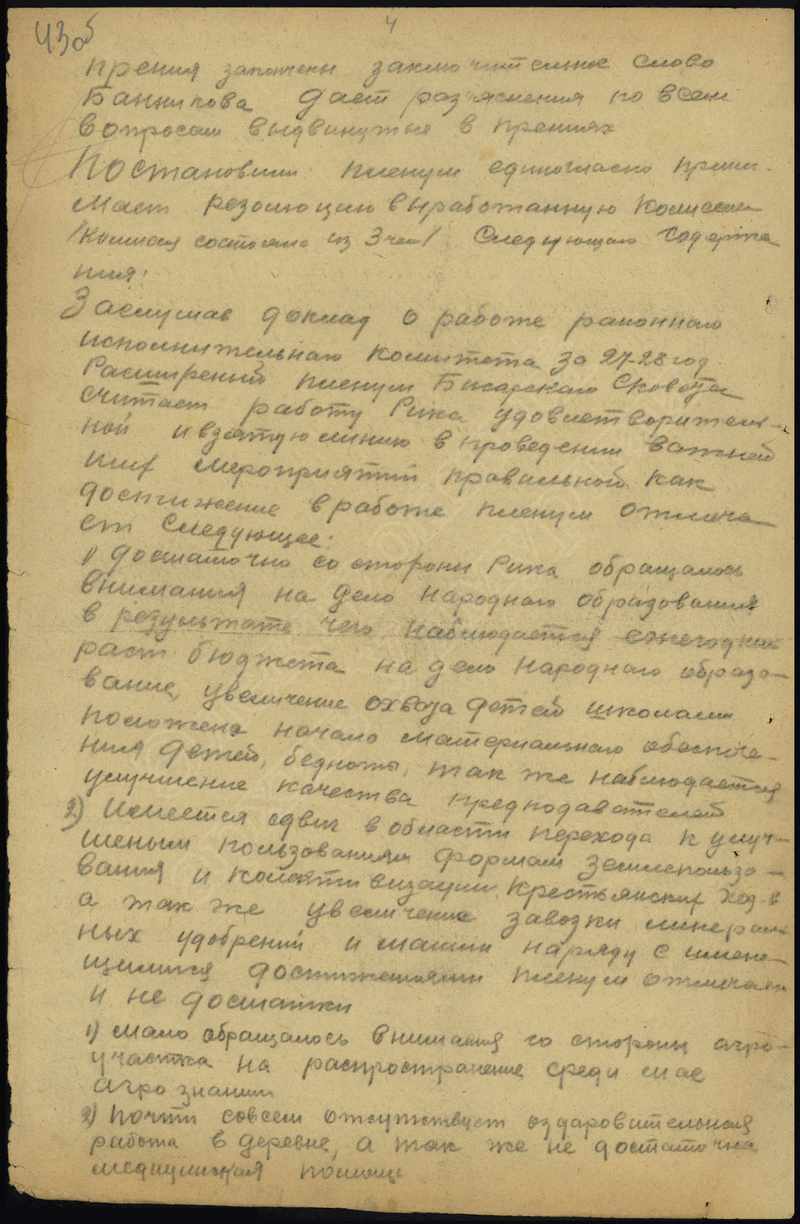 43об
4
прения закончены заключительное слово
Банникова дает разъяснения по всем
вопросам выдвинутые в прениях
Постановили пленум единогласно прини-
мает резолюцию выработанную комиссией
/комиссия состояла из 3 чел/ следующего содержа
ния:
Заслушав доклад о работе районного
исполнительного комитета за 27-28 год
Расширенный пленум Сковота
считает работу Рика удовлетворитель-
ной и взятую линию в проведении важней
ших мероприятий правильной. как
достижение в работе пленум отмеча
ет следующее:
1) достаточно со стороны Рика обращалось
внимания на дело народного образования
в результате чего наблюдается ежегодный
раст бюджета на дело народного образо-
вание, увеличение охвата детей школами
положено начало материального обеспече-
ния детей, бедноты, так же наблюдается
улучшение качества преподавателей
2) Имеется сдвиг в области перехода к улуч-
шеным пользованиям формам землепользо-
вания и колективизации крестьянских хоз-в
а так же увеличение завозки минераль
ных удобрений и машин наряду с имею-
щимися достижениями пленум отмечает
и не достатки
1) мало обращалось внимания со стороны агро-
участка на распространение среди мас
агро знании
2) почти совсем отсутствует оздаровительная
работа в деревне, а так же не достаточна
медицинская помощь